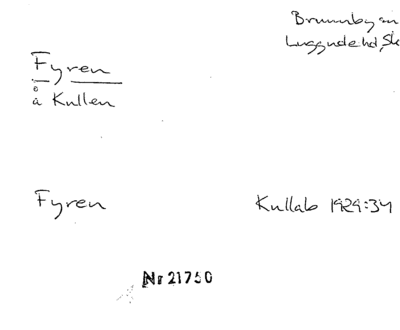 Brunnby sn
Luggude hd, Sk
Fyren
å Kullen
Fyren
Kullab 1929:34
Nr 21750